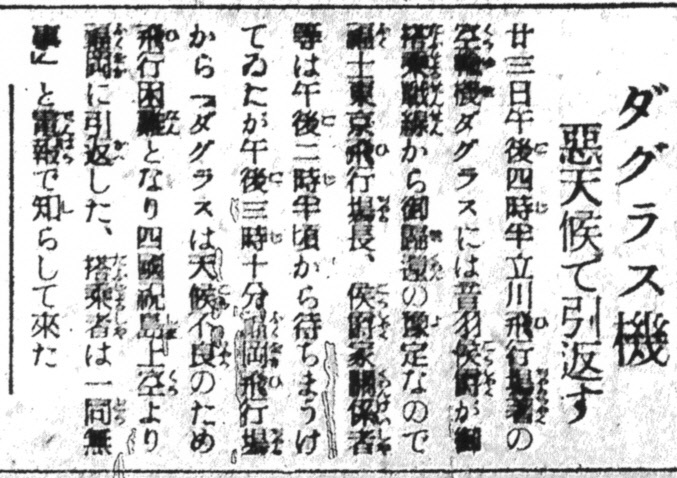 ダグラス機
惡天候で引返す
廿三日午後四時半立川飛行場着の
空輸機ダグラスには音羽侯爵が御
搭乘戰線から御歸還の豫定なので
福士東京飛行場長、侯爵家關係者
等は午後二時半頃から待ちまうけ
てゐたが午後三時十分福岡飛行場
から「ダグラスは天候不良のため
飛行困難となり四國祝島上空より
福岡に引返した、搭乘者は一同無
事」と電報で知らして來た